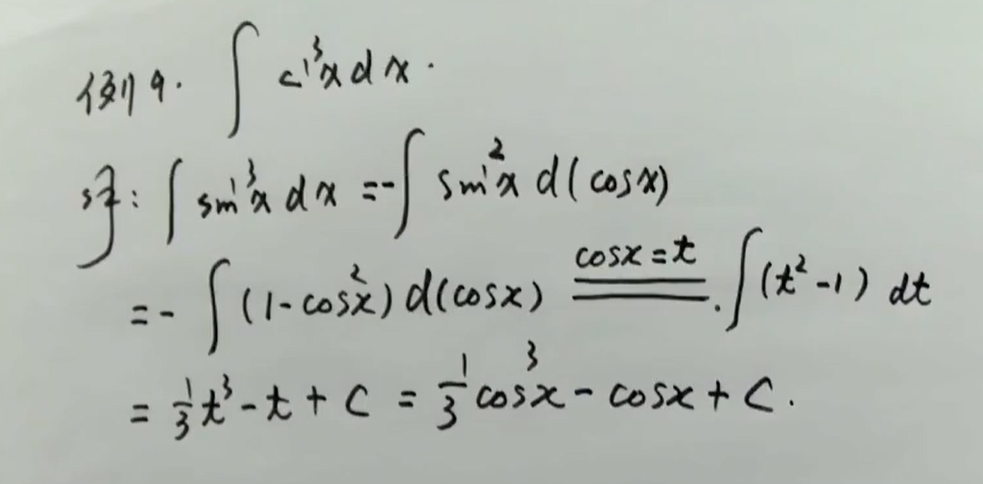 例9. ∫ sin³x dx.
解: ∫ sin³x dx = -∫ sin²x d(cosx)
= - ∫ (1-cos²x) d(cosx) cosx=t ∫ (t²-1) dt
= 1/3 t³ - t + C = 1/3 cos³x - cosx + C.